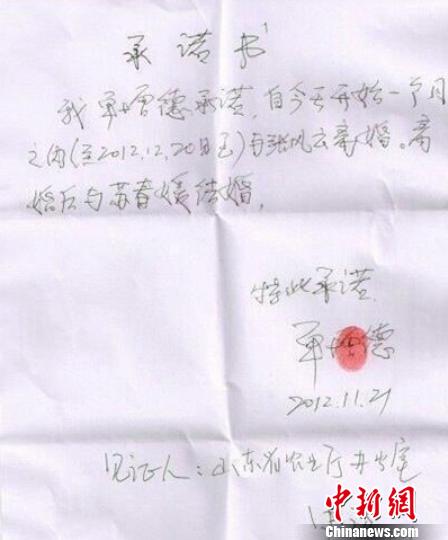 承诺书
我单增德承诺，自今天开始一个月
之内(至2012.12.20日至)与张风云离婚。离
婚后与苏春媛结婚，
特此承诺
单增德
2012.11.21
见证人：山东省农业厅办公室
中新网
www.chinanews.com